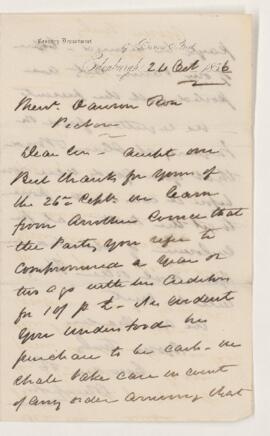 Country Department
Edinburgh, 24 Oct 1856
Messrs. Dawson
Pictou
Dear Sirs accept our
Best thanks for yours of
the 26th Septr. we learn
from another source that
the Party you refer to
compromised a year or
two ago with his Creditors
for 10/ p £. No doubt
you understood his
purchase to be cash - we
shall take care in event
of any order arriving that